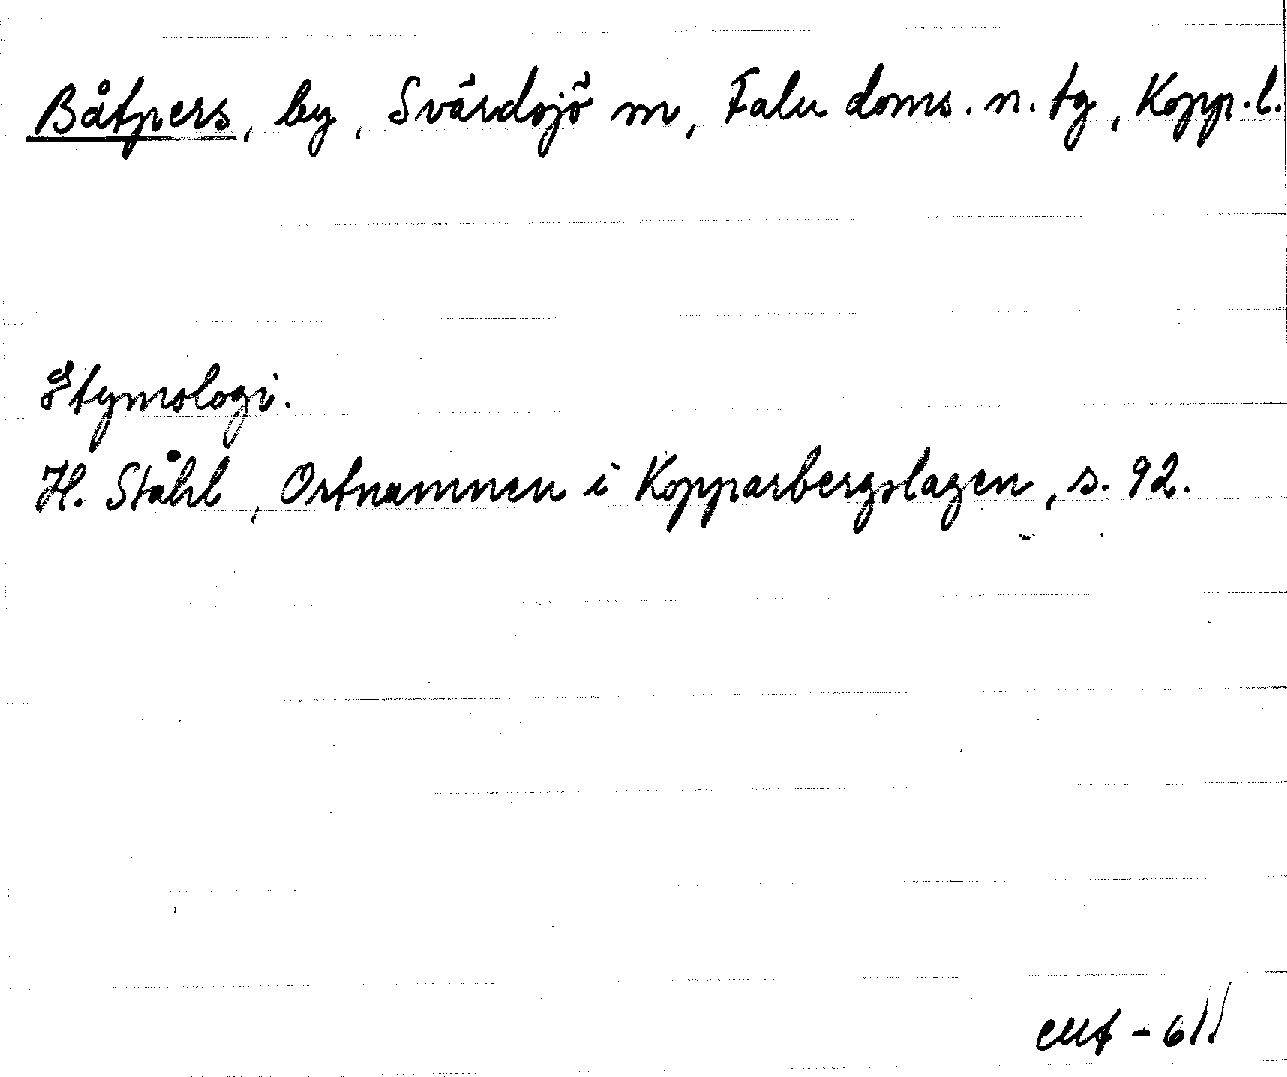 Båtpers, by, Svärdsjö sn, Falu doms. n. tg, Kopp.l.
Etymologi.
H. Ståhl, Ortnamnen i Kopparbergslagen, s. 92.